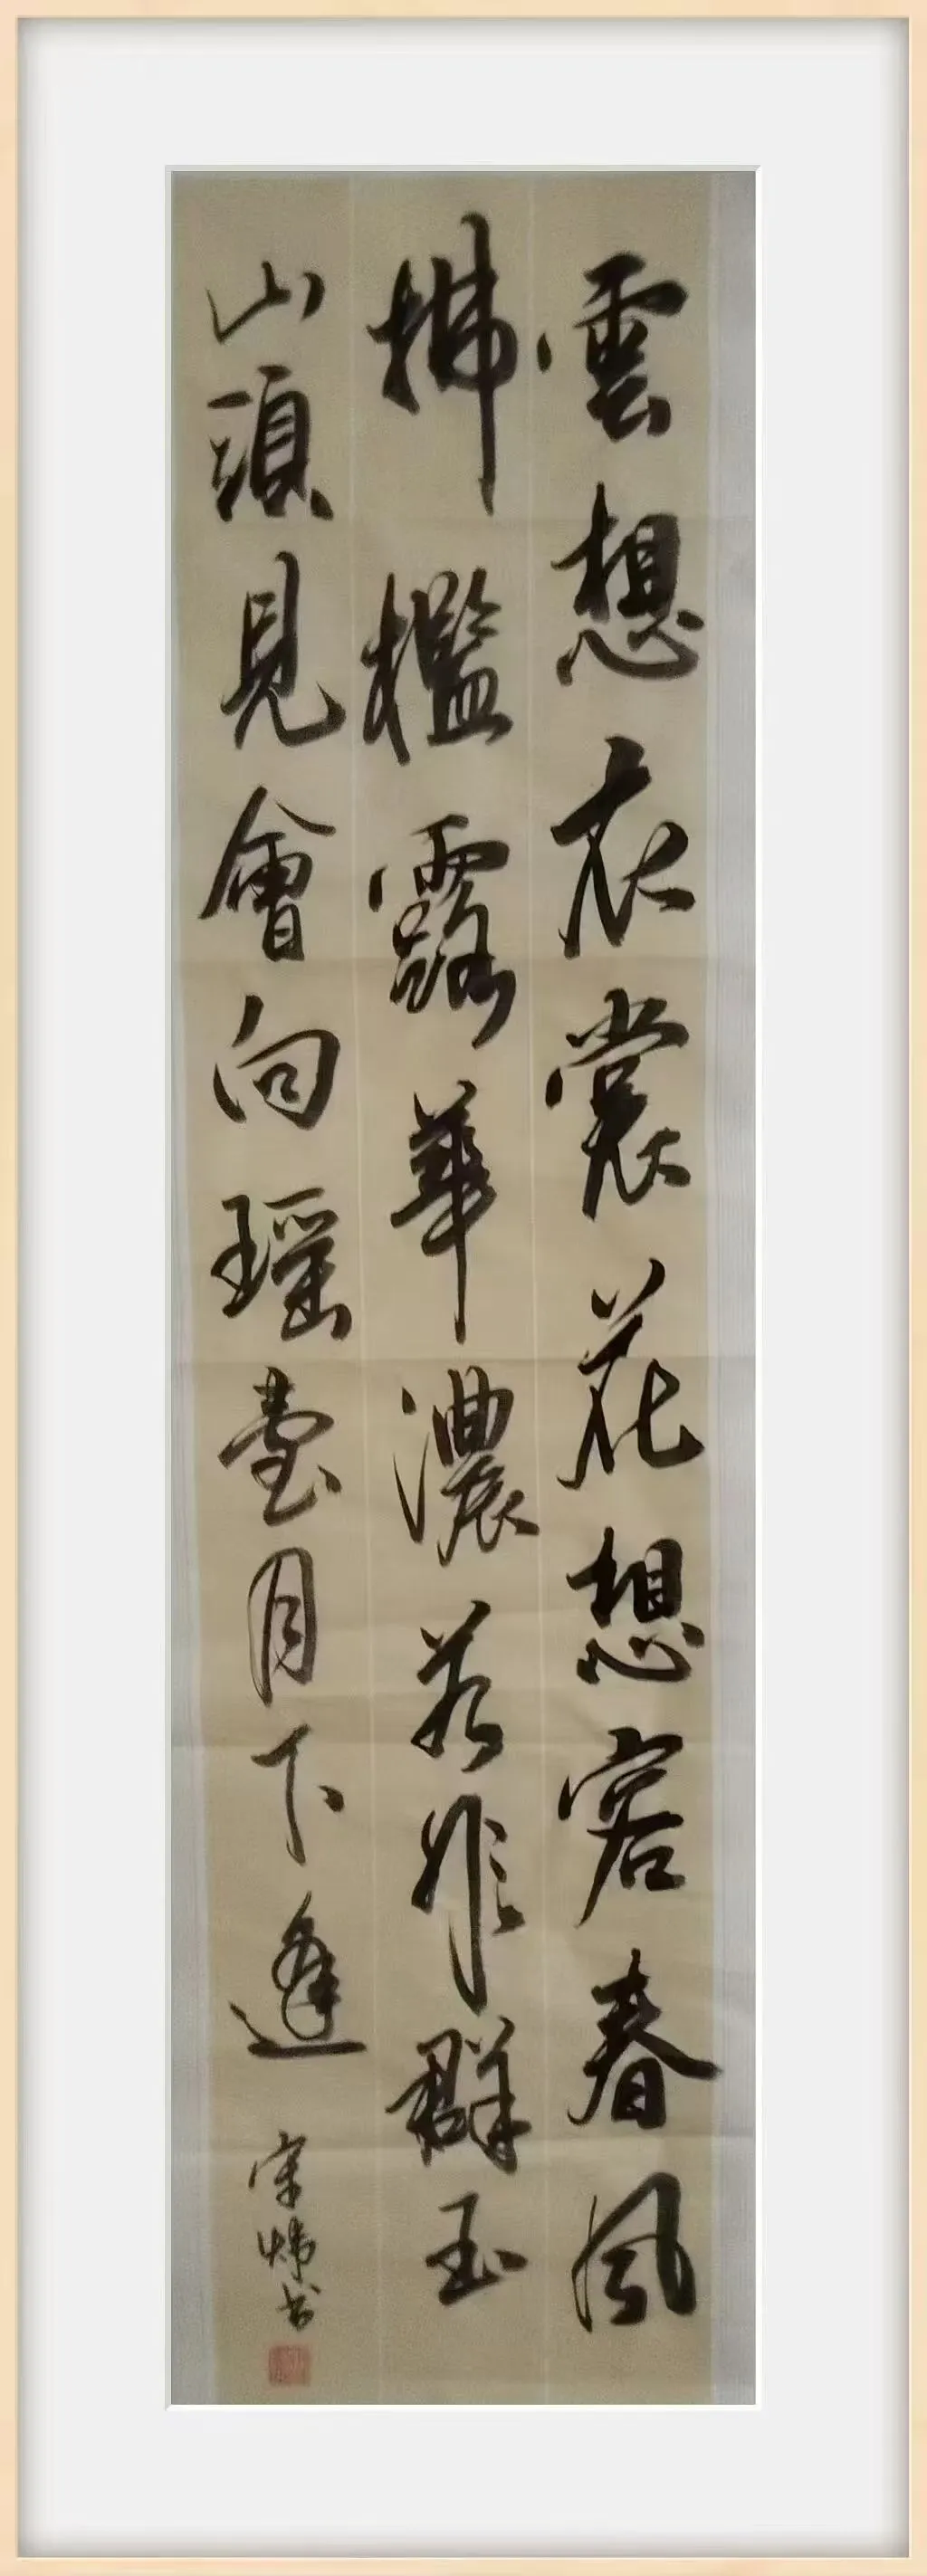 雲想衣裳花想容春風
拂檻露華濃若非群玉
山頭見會向瑤臺月下逢
宋炜书